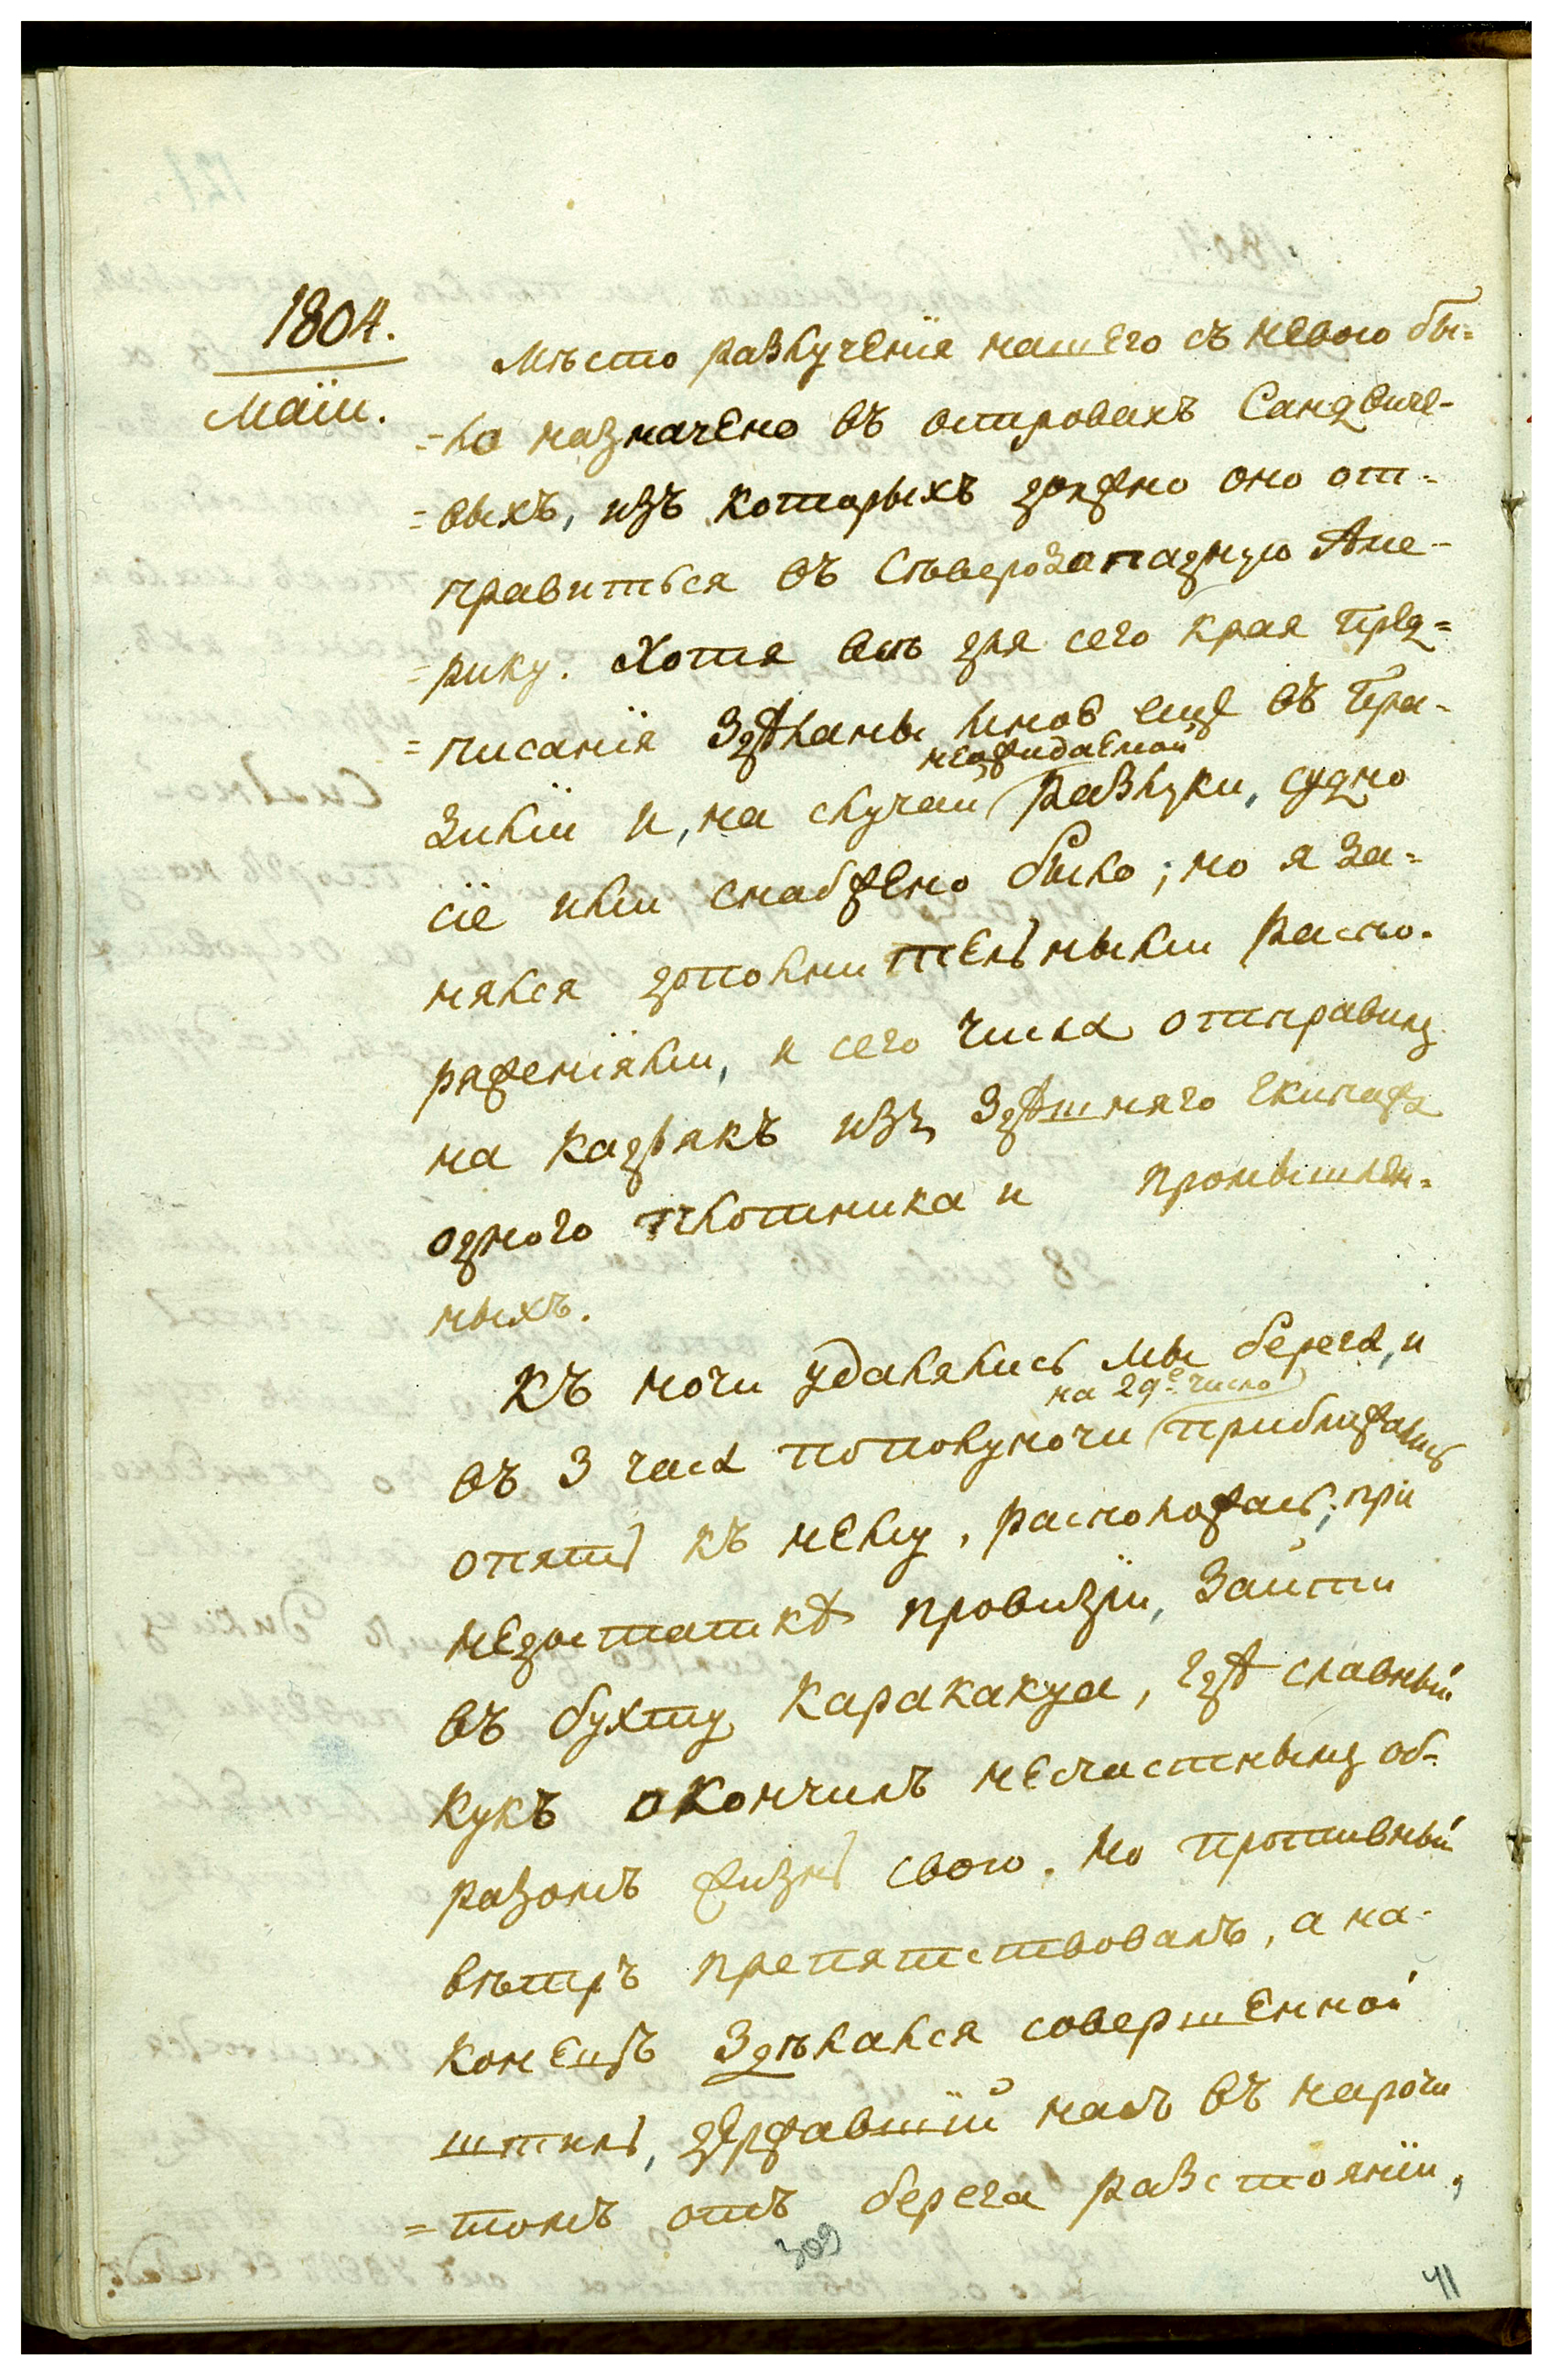 1804.
Маїи.
Мѣсто разлученія нашего съ Невою бы=
=ло назначено въ островахъ Сандвиче-
=выхъ, изъ которыхъ должно оно от-
правиться въ Сѣверозападную Аме-
=рику. Хотя всѣ для сего края пред=
=писанія Здѣланы мною еще въ Бра-
нежидаемой
Зиліи и, на случаи разлуки, судно
сіе ими снабжено было; но я за=
нялся дополнительными распо-
ряженіями, и сего числа отправилъ
на Кадьякъ изъ Здѣшняго екипажа
одного плотника и промышлен-
ныхъ.
Къ ночи удалялись мы берега, и
на 29е число
въ 3 часа пополуночи приближались
опять къ нему, располагаясь, при
недостаткѣ провизіи, Зайти
въ бухту Каракакуа, гдѣ славный
Кукъ окончилъ несчастнымъ об-
разомъ жизнь свою. Но противный
вѣтръ препятствовалъ, а на-
конецъ Здѣлался совершенной
штиль, державшій насъ въ нарочи
=томъ отъ берега разстояніи,
309
41